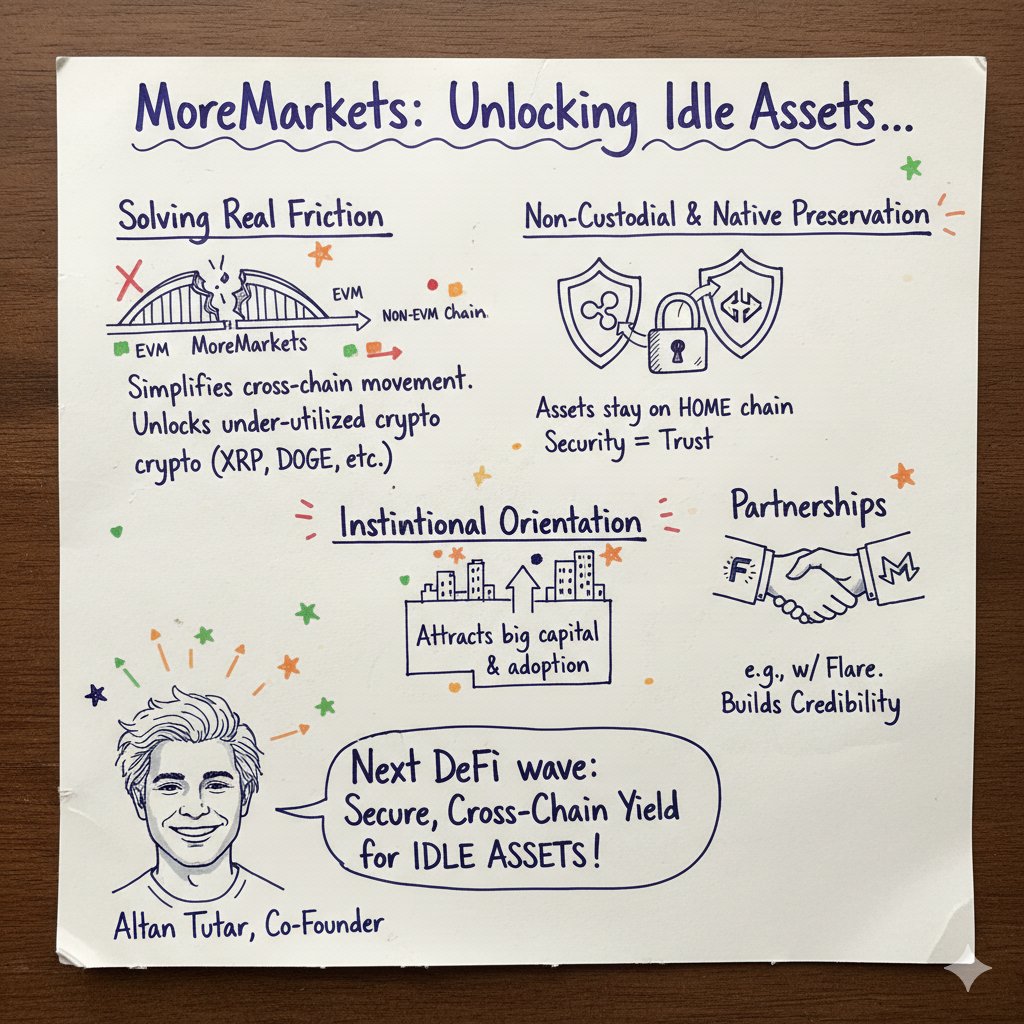 MoreMarkets: Unlocking Idle Assets...
Solving Real Friction
EVM
NON-EVM Chain.
EVM MoreMarkets
Simplifies cross-chain movement.
Unlocks under-utilized crypto
crypto (XRP, DOGE, etc.)
Non-Custodial & Native Preservation
Assets stay on HOME chain
Security = Trust
Instintional Orientation
Attracts big capital
& adoption
Partnerships
F
M
e.g., w/ Flare.
Builds Credibility
Next DeFi wave:
Secure, Cross-Chain Yield
for IDLE ASSETS!
Altan Tutar, Co-Founder